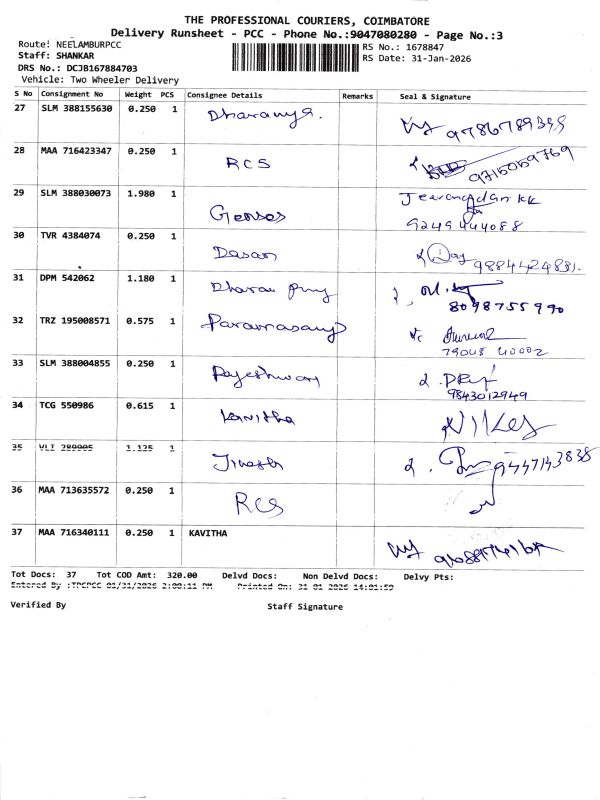 THE PROFESSIONAL COURIERS, COIMBATORE
Delivery Runsheet - PCC - Phone No.:9047080280 - Page No.:3
Route: NEELAMBURPCC
RS No.: 1678847
Staff: SHANKAR
RS Date: 31-Jan-2026
DRS No.: DCJB167884703
Vehicle: Two Wheeler Delivery
S No Consignment No Weight PCS Consignee Details Remarks Seal & Signature
27 SLM 388155630 0.250 1 Dharanya. 9786789395
28 MAA 716423347 0.250 1 RCS 9715059769
29 SLM 388030073 1.980 1
9249444088
30 TVR 4384074 0.250 1 Dasan
31 DPM 542062 1.180 1 Dharan
8098755990
32 TRZ 195008571 0.575 1
79048 40002
33 SLM 388004855 0.250 1 Rajeshwari
9843012949
34 TCG 550986 0.615 1 Kavitha
35 VLT 289905 1.125 1 Jinesh 9447143838
36 MAA 713635572 0.250 1 RCS
37 MAA 716340111 0.250 1 KAVITHA
Tot Docs: 37 Tot COD Amt: 320.00 Delvd Docs: Non Delvd Docs: Delvy Pts:
Entered By :TPCPCC 01/31/2026 2:00:11 PM Printed On: 31-01-2026 14:01:59
Verified By Staff Signature